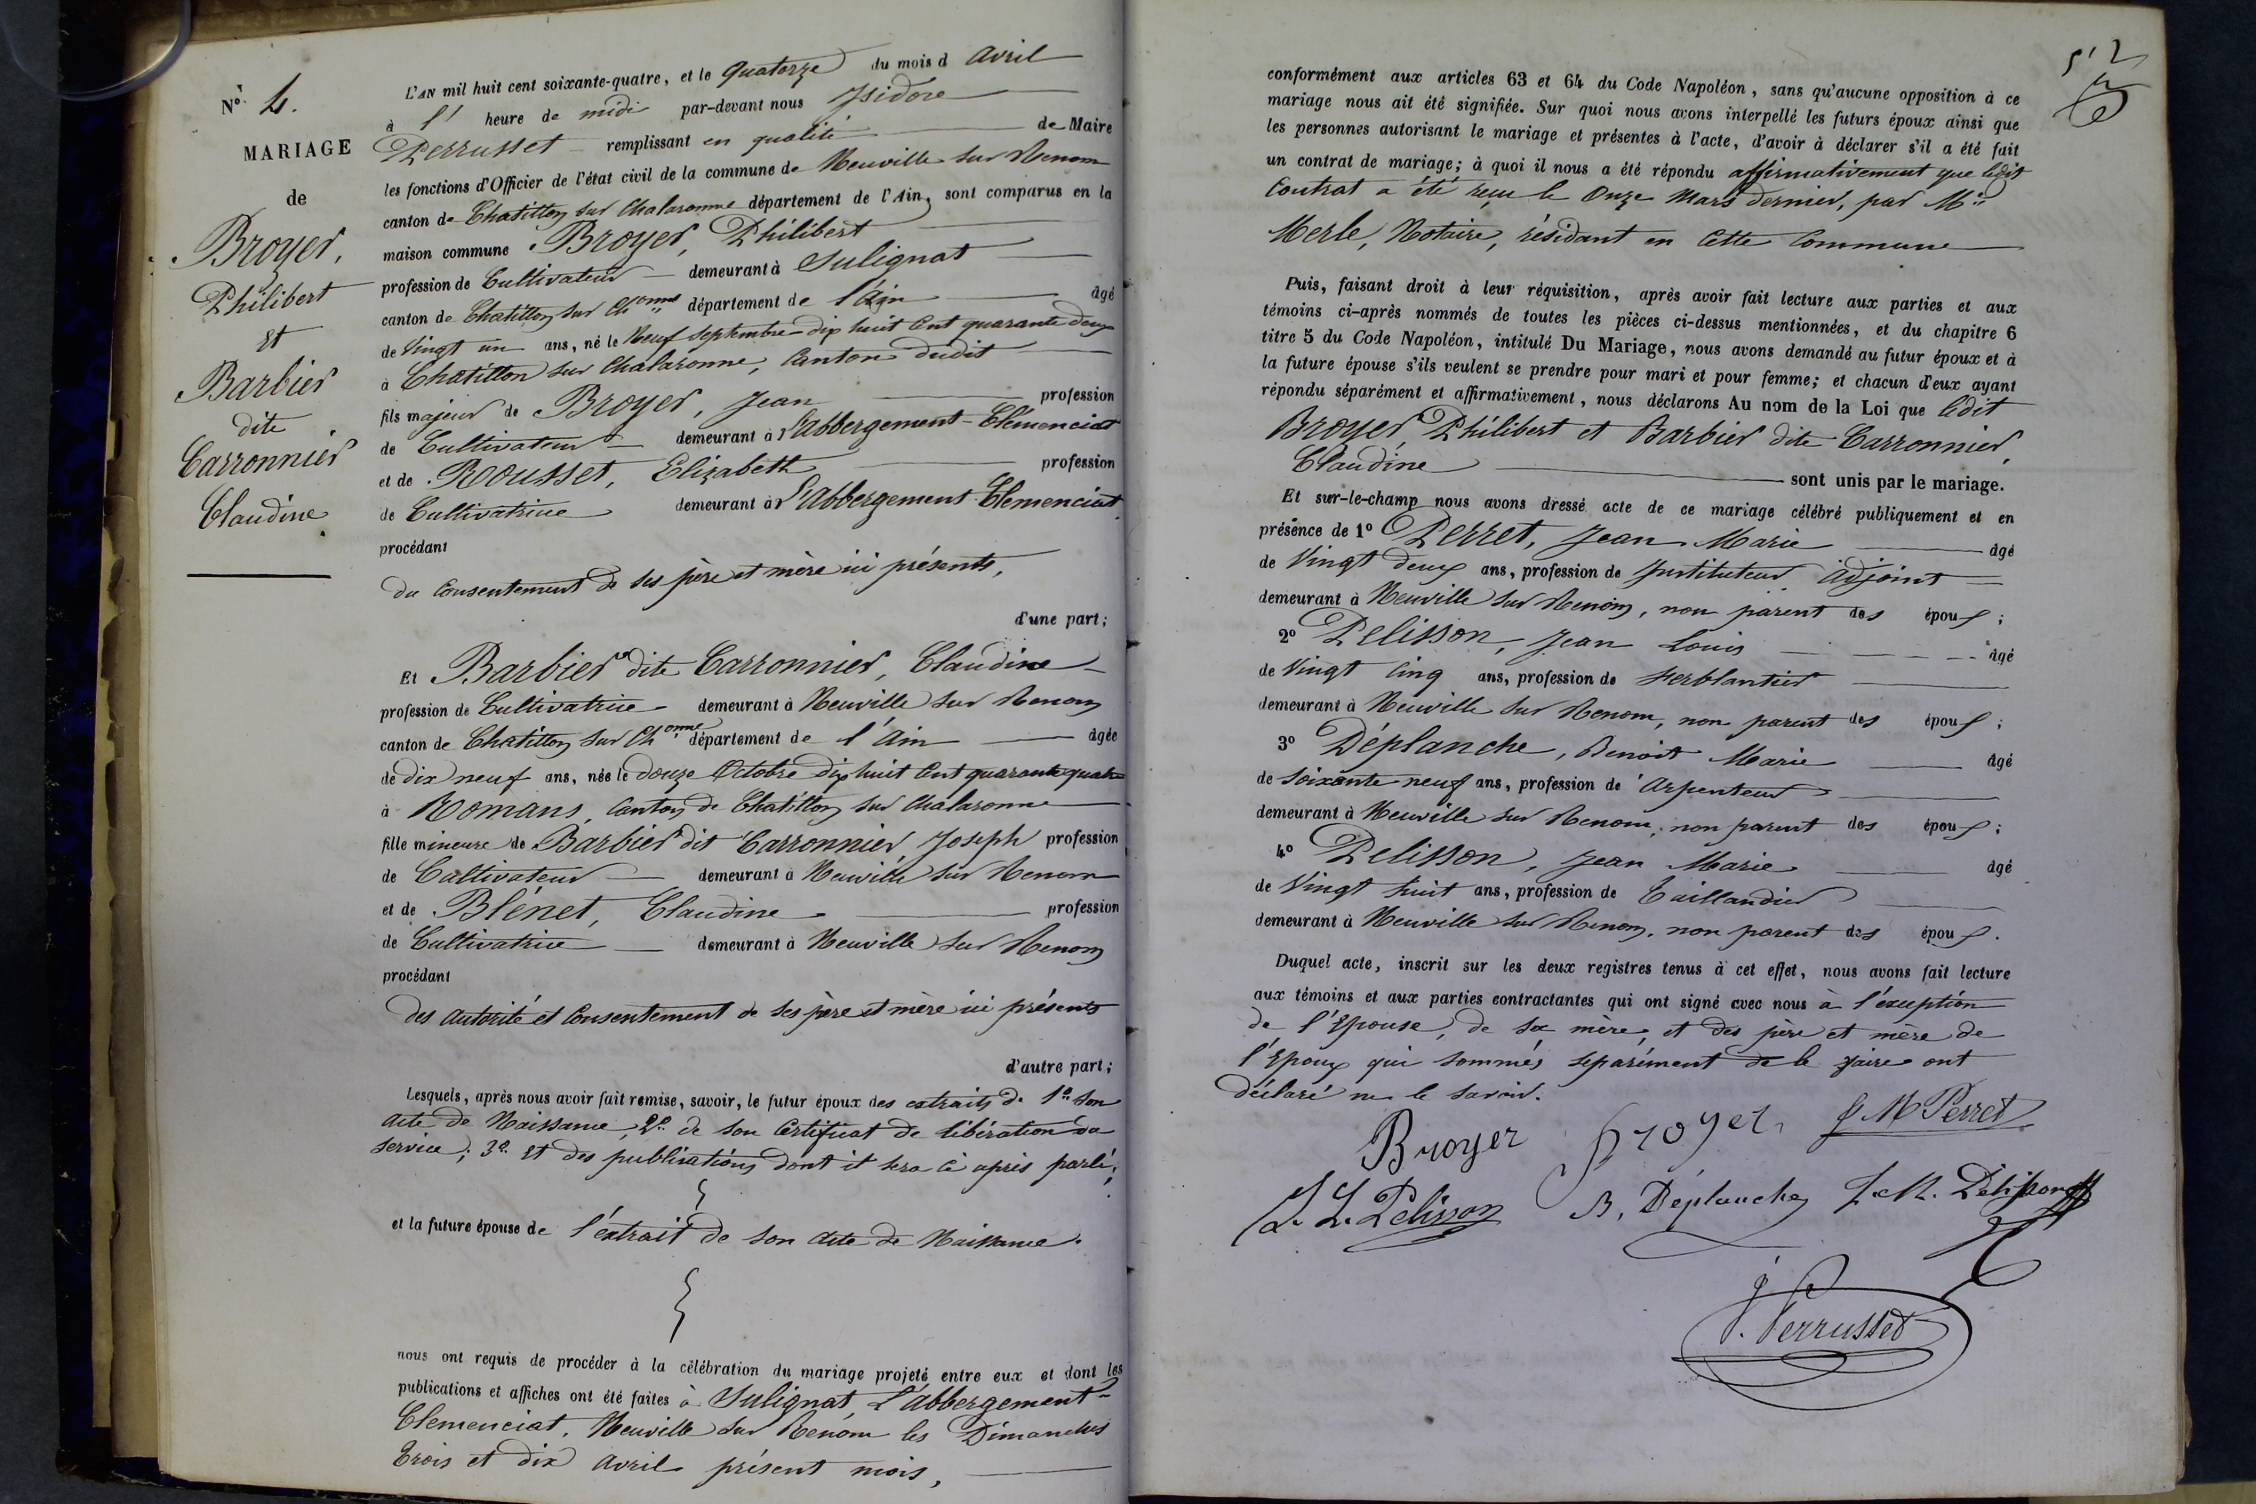 N° 4.
MARIAGE
de
Broyer,
Philibert
et
Barbier
dite
Carronnier
Claudine.
L'AN mil huit cent soixante-quatre, et le quatorze du mois d avril
à l' heure de midi par-devant nous Isidore
Perrusset remplissant en qualité de Maire
les fonctions d'Officier de l'état civil de la commune de Neuville sur Renom
canton de Chatillon sur Chalaronne département de l'Ain, sont comparus en la
maison commune Broyer, Philibert
profession de Cultivateur demeurant à Sulignat
canton de Chatillon sur Ch.onne département de l'Ain âgé
de vingt un ans, né le Neuf septembre dix huit cent quarante deux
à Chatillon sur Chalaronne, Canton dudit
fils majeur de Broyer, Jean profession
de Cultivateur demeurant à l'Abbergement-Clémenciat
et de Rousset, Elizabeth profession
de Cultivatrice demeurant à l'Abbergement Clemenciat
procédant
du consentement de ses père et mère ici présents,
d'une part;
Et Barbier dite Carronnier, Claudine
profession de Cultivatrice demeurant à Neuville sur Renom
canton de Chatillon sur Ch.onne département de l'Ain âgée
de dix neuf ans, née le douze Octobre dix huit cent quarante quatre
à Romans, Canton de Chatillon sur Chalaronne
fille mineure de Barbier dit Carronnier Joseph profession
de Cultivateur demeurant à Neuville sur Renom
et de Blénet, Claudine profession
de Cultivatrice demeurant à Neuville sur Renom
procédant
des autorité et consentement de ses père et mère ici présents
d'autre part;
Lesquels, après nous avoir fait remise, savoir, le futur époux des extraits de 1° son
acte de Naissance, 2° de son Certificat de libération du
service; 3° Et des publications dont il sera ci après parlé;
et la future épouse de l'extrait de son acte de Naissance.
nous ont requis de procéder à la célébration du mariage projeté entre eux et dont les
publications et affiches ont été faites à Sulignat L'abbergement-
Clemenciat, Neuville sur Renom les Dimanches
trois et dix avril présent mois,
52
conformément aux articles 63 et 64 du Code Napoléon, sans qu'aucune opposition à ce
mariage nous ait été signifiée. Sur quoi nous avons interpellé les futurs époux ainsi que
les personnes autorisant le mariage et présentes à l'acte, d'avoir à déclarer s'il a été fait
un contrat de mariage; à quoi il nous a été répondu affirmativement que ledit
Contrat a été reçu le Onze Mars dernier, par M.e
Merle, Notaire, résidant en cette Commune
Puis, faisant droit à leur réquisition, après avoir fait lecture aux parties et aux
témoins ci-après nommés de toutes les pièces ci-dessus mentionnées, et du chapitre 6
titre 5 du Code Napoléon, intitulé Du Mariage, nous avons demandé au futur époux et à
la future épouse s'ils veulent se prendre pour mari et pour femme; et chacun d'eux ayant
répondu séparément et affirmativement, nous déclarons Au nom de la Loi que ledit
Broyer, Philibert et Barbier dite Carronnier,
Claudine sont unis par le mariage.
Et sur-le-champ nous avons dressé acte de ce mariage célébré publiquement et en
présence de 1° Perret, Jean Marie âgé
de vingt deux ans, profession de Instituteur adjoint
demeurant à Neuville sur Renom, non parent des époux;
2° Pelisson, Jean Louis âgé
de vingt cinq ans, profession de ferblantier
demeurant à Neuville sur Renom, non parent des époux;
3° Déplanche, Benoit Marie âgé
de soixante neuf ans, profession de Arpenteur
demeurant à Neuville sur Renom, non parent des époux;
4° Pelisson, Jean Marie âgé
de vingt huit ans, profession de Taillandier
demeurant à Neuville sur Renom, non parent des époux.
Duquel acte, inscrit sur les deux registres tenus à cet effet, nous avons fait lecture
aux témoins et aux parties contractantes qui ont signé avec nous à l'exception
de l'Epouse, de sa mère, et des père et mère de
l'Epoux qui sommés séparément de le faire ont
déclaré ne le savoir.
Broyer Broyer J M Perret
J. L. Pelisson B. Déplanche J. M. Pelisson
J. Perrusset